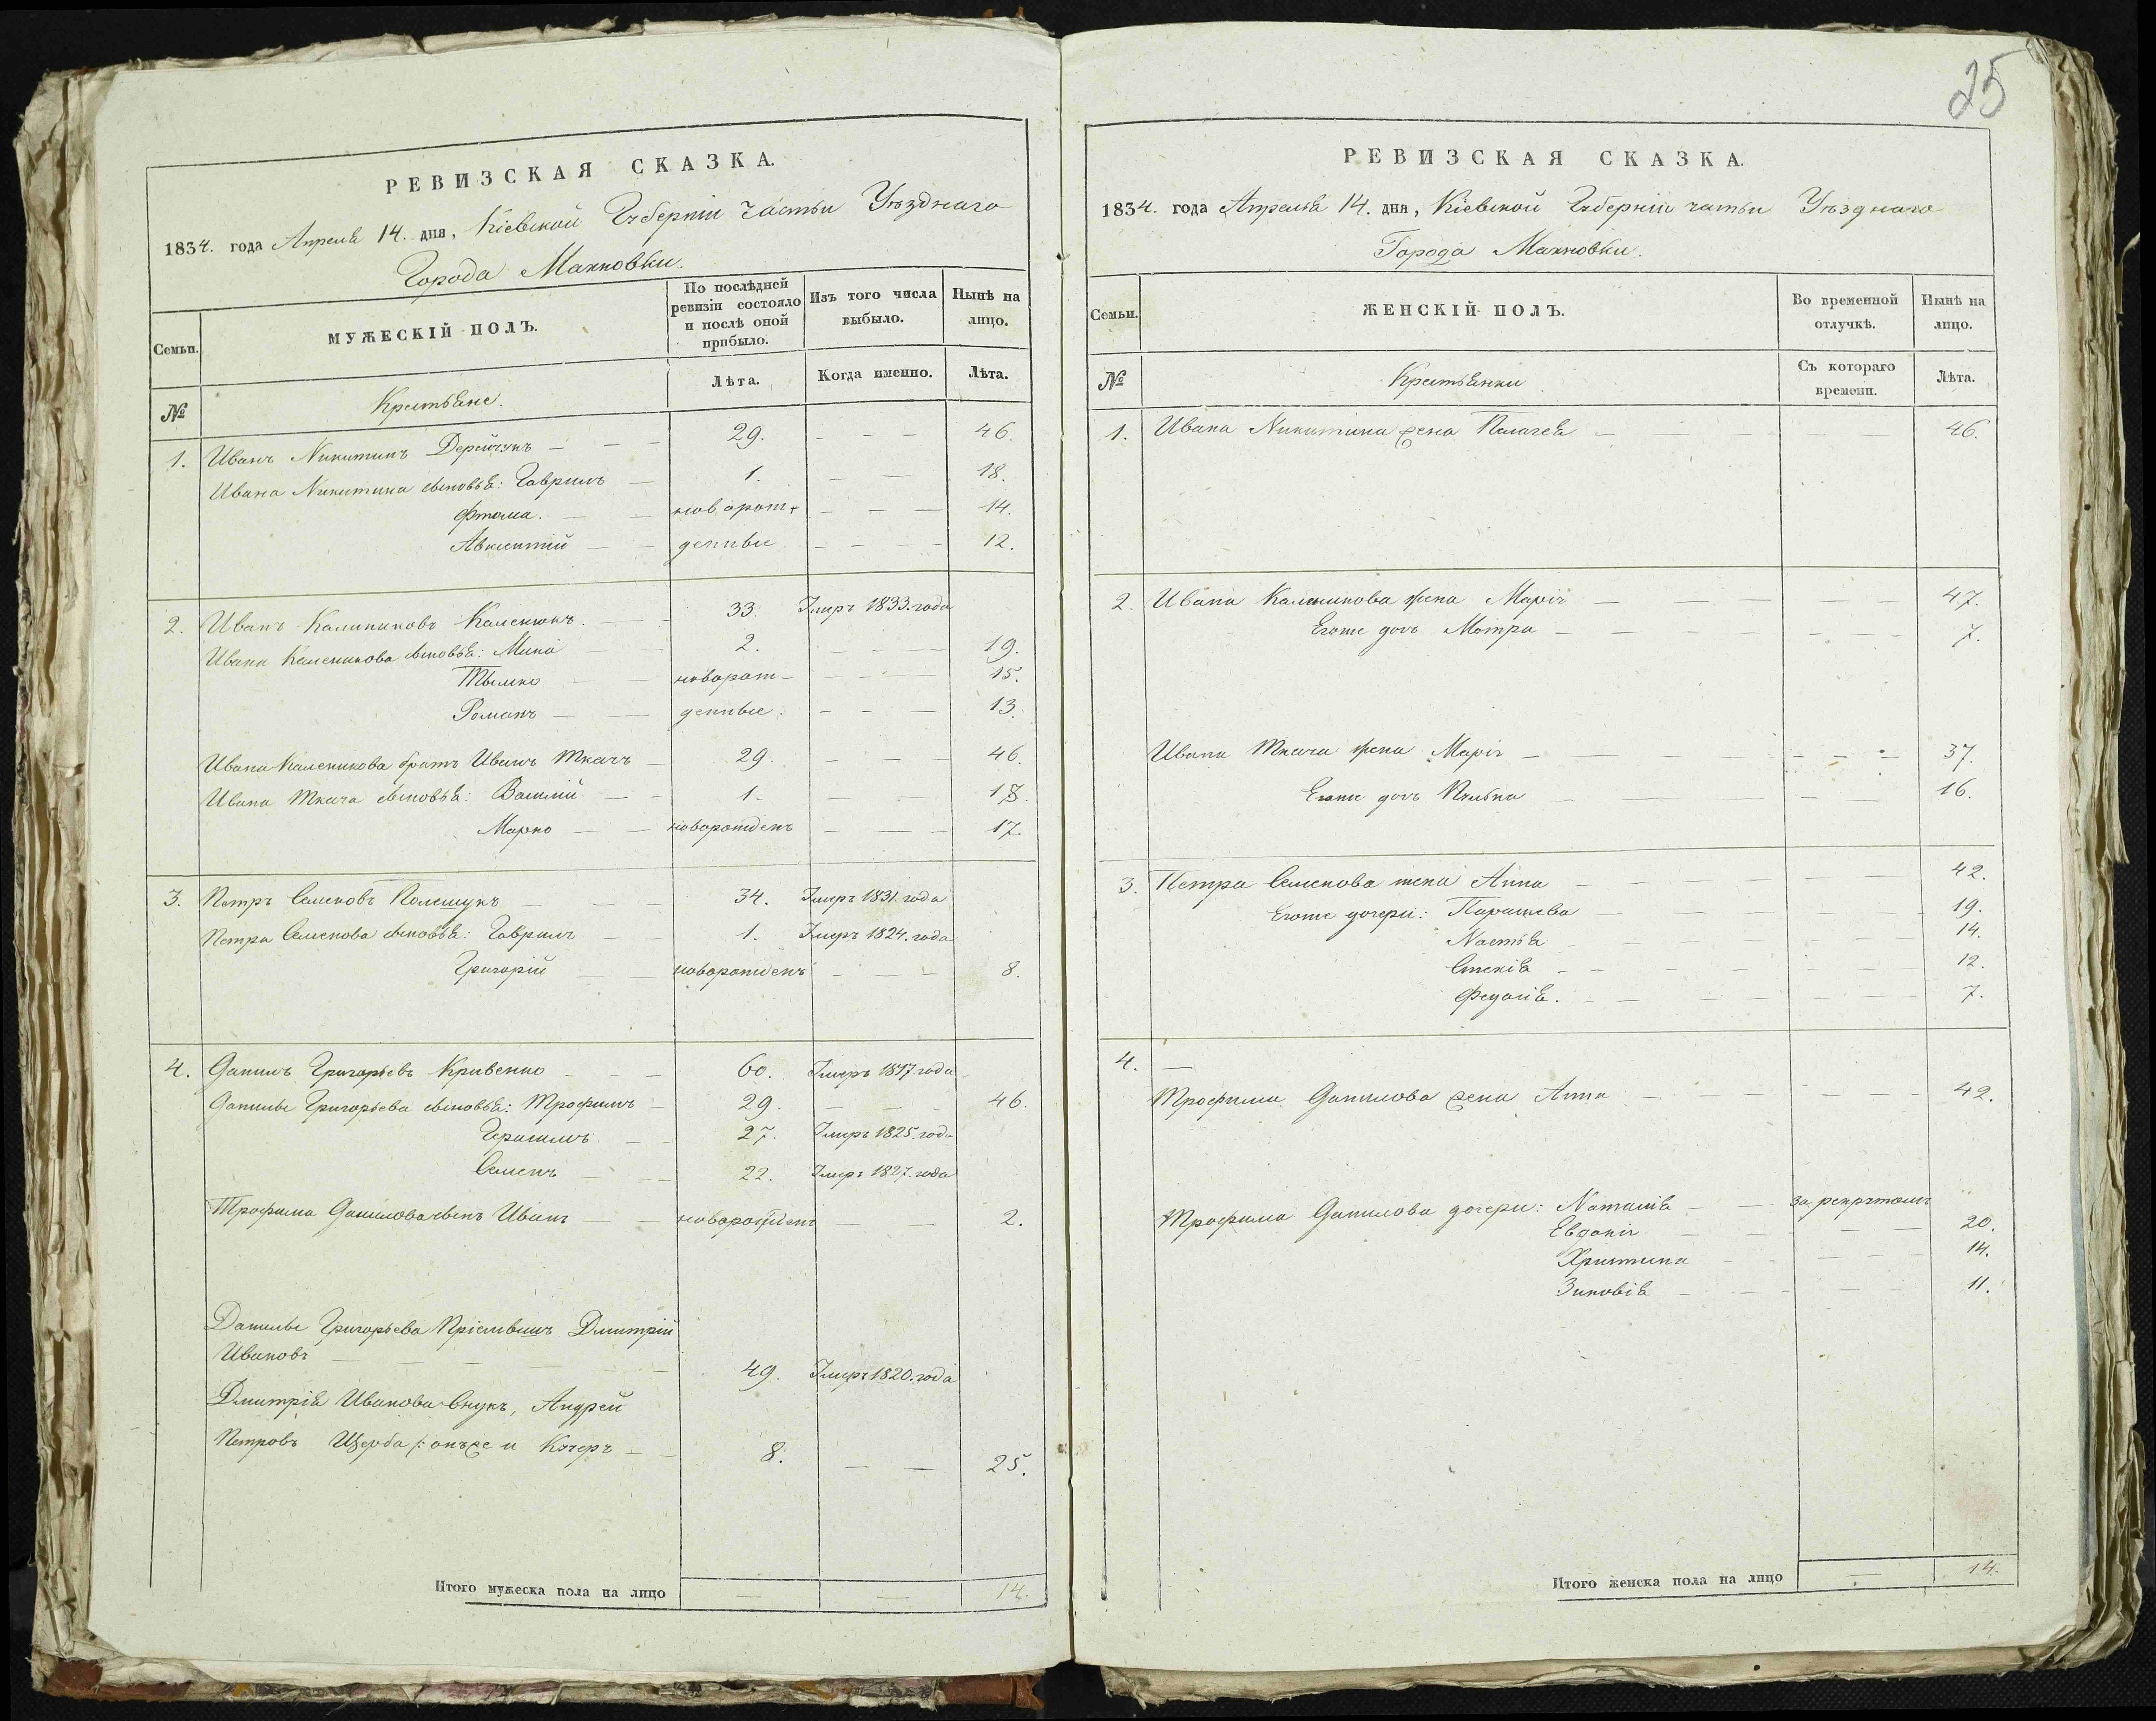 РЕВИЗСКАЯ СКАЗКА.
1834. года Апреля 14. дня, Кіевской Губерніи части Уѣзднаго
Города Махновки.
Семьи.
МУЖЕСКІЙ ПОЛЪ.
По послѣдней
ревизіи состояло
и послѣ оной
прибыло.
Изъ того числа
выбыло.
Нынѣ на
лицо.
№
Крестьяне.
Лѣта.
Когда именно.
Лѣта.
1. Иванъ Никитинъ — — 29. — — — 46.
Ивана Никитина сыновья: Гаврило — 1. — — 18.
Фтома. — — новорож- — — — 14.
Авксентий — — денные — — — 12.
2. Иванъ Калениковъ Каленюкъ. — — 33. Умеръ 1833. года
Ивана Каленикова сыновья: Мина — — 2. — — — 19.
Тымко — — новорож- — — — 15.
Романъ — — денные: — — — 13.
Ивана Каленикова братъ Иванъ Ткачъ — 29. — — — 46.
Ивана Ткача сыновья: Василій — — 1. — — — 18.
Марко — — новорожденъ — — — 17.
3. Петръ Семеновъ Полещукъ — — — 34. Умеръ 1831. года
Петра Семенова сыновья: Гаврило — — 1. Умеръ 1824. года
Григорій — — новорожденъ — — — 8.
4. Данило Григорьевъ Кривенко — — 60. Умеръ 1817. года
Данилы Григорьева сыновья: Трофимъ — 29. — — 46.
Герасимъ — 27. Умеръ 1825. года
Семенъ — — 22. Умеръ 1827. года
Трофима Данилова сынъ Иванъ — — новорожденъ — — 2.
Данилы Григорьева Пріемышъ Дмитрій
Ивановъ — — — — — 49. Умеръ 1820. года
Дмитрія Иванова внукъ, Андрей
Петровъ Щерба /: онъ же и Кучеръ — — 8. — — 25.
Итого мужеска пола на лицо — — 14.
25
РЕВИЗСКАЯ СКАЗКА.
1834. года Апреля 14. дня, Кіевской Губерніи части Уѣзднаго
Города Махновки.
Семьи.
ЖЕНСКІЙ ПОЛЪ.
Во временной
отлучкѣ.
Нынѣ на
лицо.
№
Крестьянки
Съ котораго
времени.
Лѣта.
1. Ивана Никитина жена Пелагея — — — — — 46.
2. Ивана Каленикова жена Марія — — — — — 47.
Егоже дочь Мотра — — — — — 7.
Ивана Ткача жена Марія — — — — — 37.
Егоже дочь — — — — 16.
3. Петра Семенова жена Анна — — — — — 42.
Егоже дочери: Параскева — — — — 19.
Настья — — — — 14.
— — — — 12.
Федосія. — — — — 7.
4. —
Трофима Данилова жена Анна — — — — — 42.
Трофима Данилова дочери: Наталія — — за рекрутомъ
Евдокія — — — — 20.
Христина — — — — 14.
Зиновія — — — — 11.
Итого женска пола на лицо — 14.